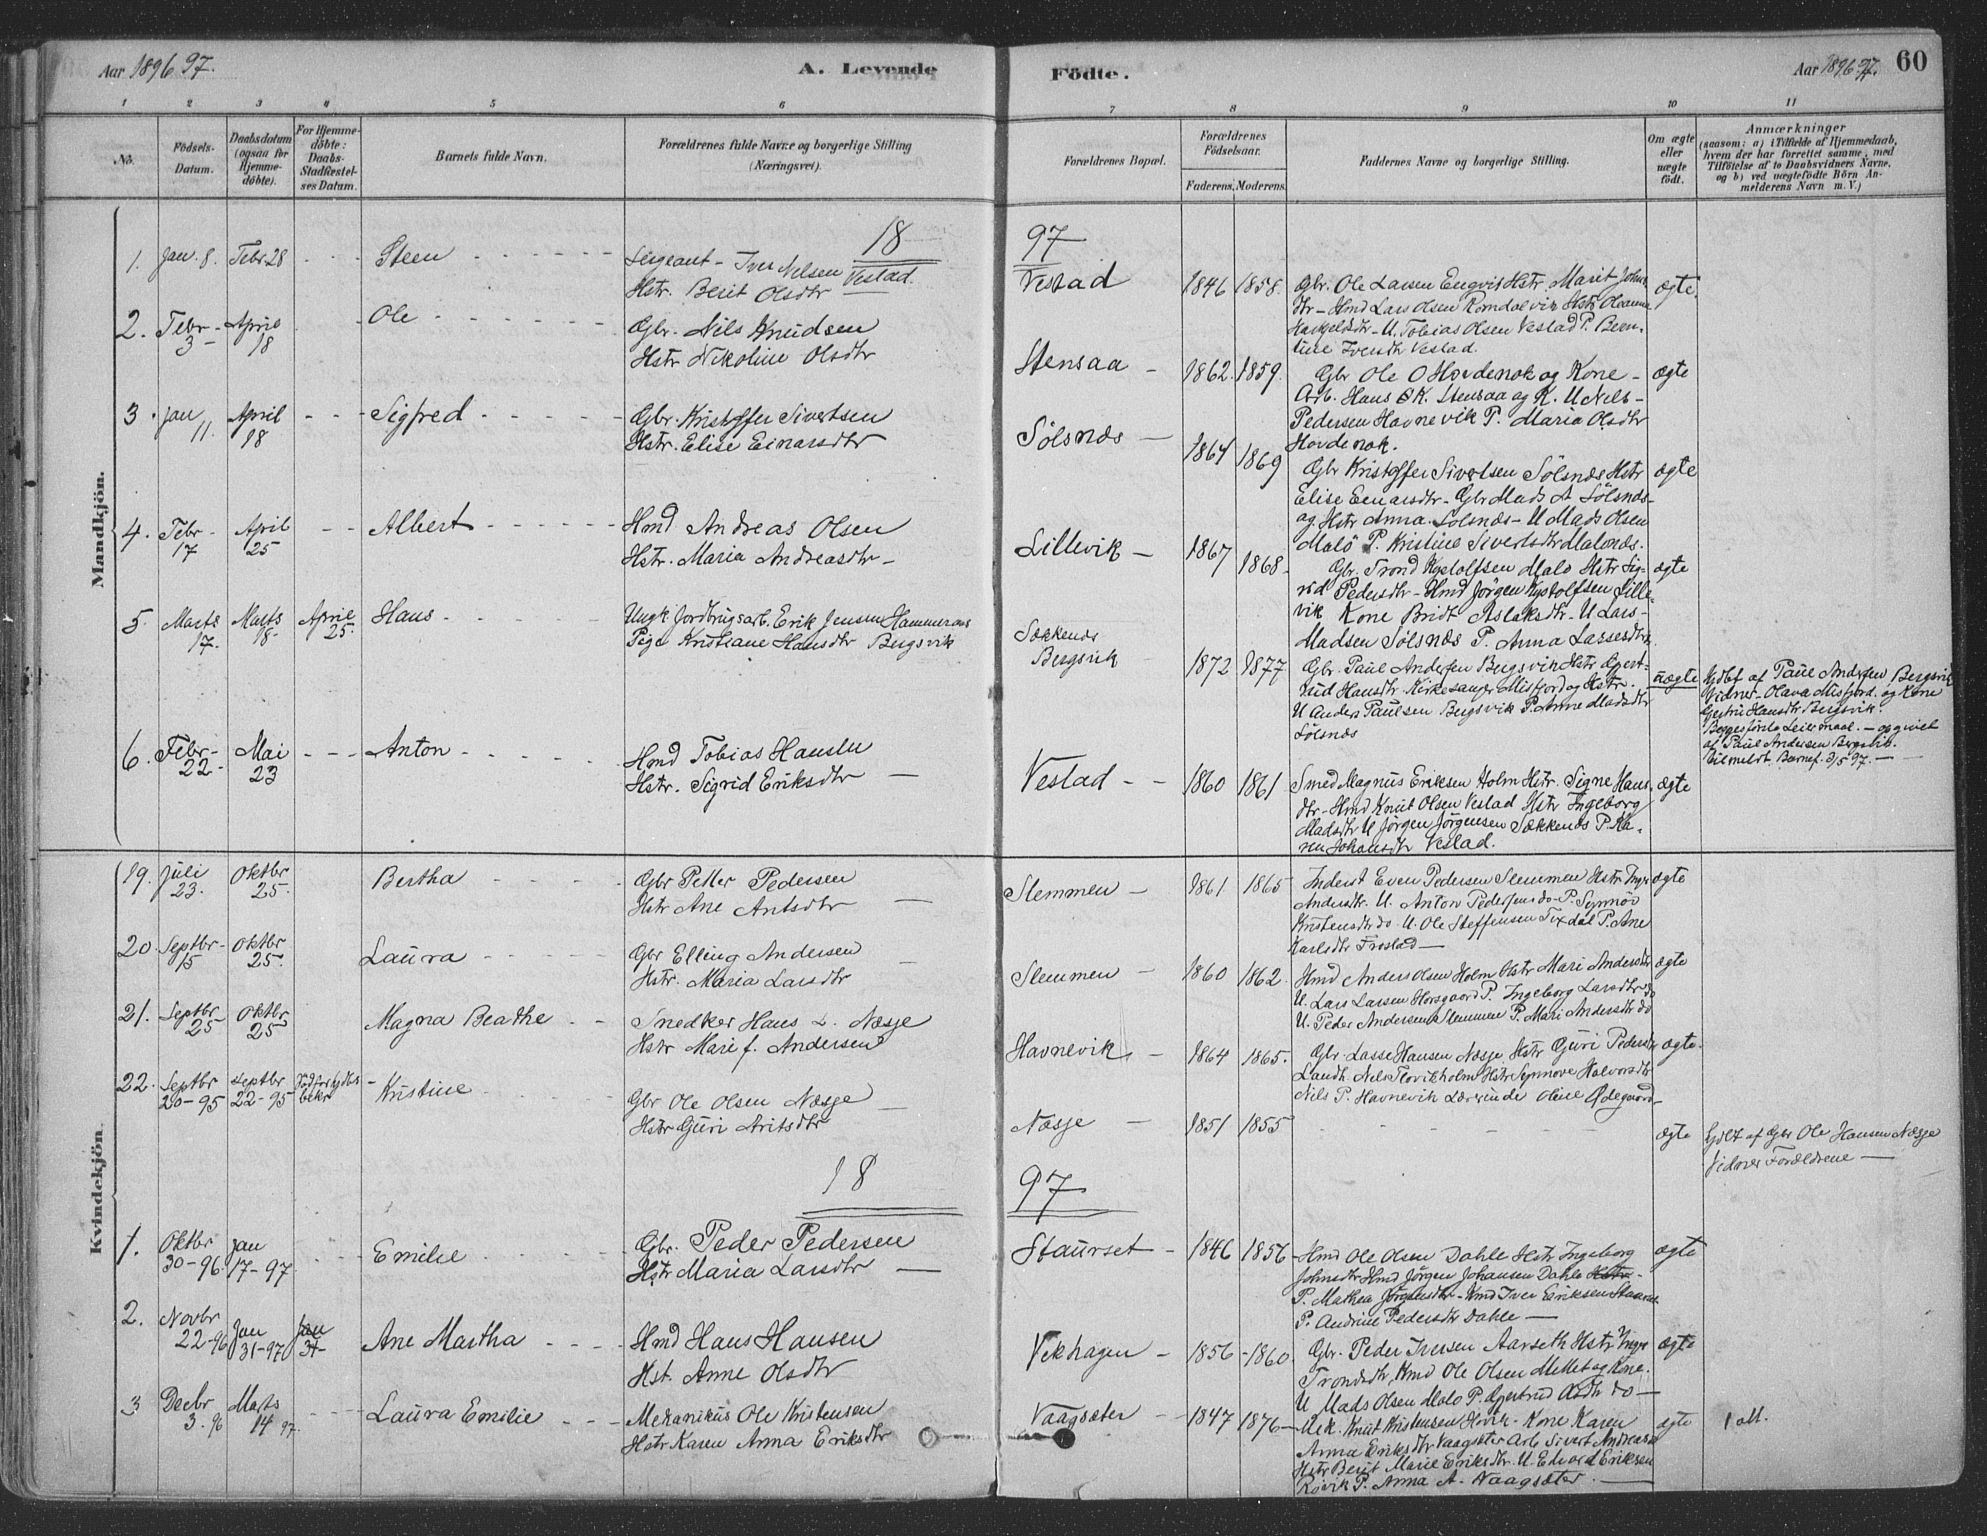 Aar 1896 97.
A. Levende
Födte.
Aar 1896 97.
60
1 2 3 4 5 6 7 8 9 10 11
No.
Födsels-
Datum.
Daabsdatum
(ogsaa for
Hjemme-
döbte).
For Hjemme-
döbte:
Daabs-
Stadfæstel-
ses Datum.
Barnets fulde Navn.
Forældrenes fulde Navne og borgerlige Stilling
(Næringsvei).
Forældrenes Bopæl.
Forældrenes
Födselsaar.
Faderens. Moderens.
Faddernes Navne og borgerlige Stilling.
Om ægte
eller
uægte
födt.
Anmærkninger
(saasom: a) i Tilfælde af Hjemmedaab,
hvem der har forrettet samme, med
Tilföielse af to Daabsvidners Navne,
og b) ved uægtefödte Börn An-
melderens Navn m. V.)
Mandkjön.
18
97
1. Jan. 8. Febr. 28 Steen
Sergeant - Iver Nilsen Vestad.
Hstr. Berit Olsdtr
Vestad 1846 1858
Gbr. Ole Larsen Engvis Hstr Marit Johns
dtr - Hmd Lars Olsen Romdalvik Hstr Oleanna
Haskeldsdtr - U. Tobias Olsen Vestad P. Bern-
tine Iversdtr Vestad.
ægte.
2. Febr 3 - April 18 Ole
Gbr. Nils Knudsen
Hstr Nikoline Olsdtr
Stensaa 1862. 1859.
Gbr Ole O Hovdenok og Kone -
Arb. Hans O K. Stensaa og K. U Nils -
Pedersen Havnevik P. Maria Olsdtr
Hovdenok.
ægte
3. Jan 11. April 18 Sigfred
Gbr. Kristoffer Sivertsen
Hstr. Elise Einarsdtr
Sölsnæs 1864 1869
Gbr Kristoffer Sivertsen Sölsnæs Hstr
Elise Eenarsdtr - Gbr Mads A Sölsnæs -
og Hstr Anna Solsnæs - U Mads Olsen
Malö P. Kristine Sivertsdtr Malonæs.
ægte
4. Febr 17 April 25 Albert
Hmd Andreas Olsen
Hstr. Maria Andreasdtr -
Lillevik 1867 1868
Gbr. Trond Kystolfsen Malo Hstr Sig-
rid Pedersdtr - Hmd Jörgen Kystolfsen Lille-
vik Kone Bridt Aslaksdtr. U Lars -
Madsen Sölsnæs P. Anna Larsesdtr
ægte
5. Marts 17. Marts 18. April 25. Hans
Ungk Jordbrugsarb. Erik Jensen Hammeraas
Pige Kristiane Hansdtr Bergsvik
Sækkenæs
Bergsvik
1872 1877
Gbr. Paul Andersen Bergsvik Hstr Gjert-
rud Hansdtr. Kirkesanger Misfjord og Hstr.
U Anders Paulsen Bergsvik P. Anne Madsdtr
Sölsnæs
uægte
Hjdbt af Paul Andersen Bergsvik
Vidner - Olava Misfjord og Kone
Gjertru Hansdtr Bergsvik.
Begges förste Leiermaal. - opgivet
af Paul Andersen Bergsvik.
Tilmeldt Barnef. 3/5 97. -
6. Febr - 22 - Mai 23 Anton
Hmd Tobias Hansen
Hstr. Sigrid Eriksdtr
Vestad 1860 1861
Smed Magnus Eriksen Holm Hstr. Signe Hans
dtr - Hmd Knut Olsen Vestad Hstr Ingeborg
Madsdtr U Jörgen Jörgensen Sækkenæs P. Ka-
ren Johansdtr Vestad.
ægte
Kvindekjön.
19. Juli 23. Oktbr 25. Bertha
Gbr Petter Pedersen
Hstr Ane Antsdtr
Slemmen 1861 1865
Inderst Even Pedersen Slemmen Hstr Inge
Andersdtr. U. Anton Pedersen do - P. Synnöv
Kristensdtr do U. Ole Steffensen Tixdal P. Ane
Karlsdtr Frostad
ægte
20. Septbr 15 Oktbr 25. Laura
Gbr Elling Andersen
Hstr. Maria Larsdtr
Slemmen 1860 1862.
Hmd Anders Olsen Holm Hstr Mari Andersdtr
U. Lars Larsen Horsgaard P. Ingeborg Larsdtr do
U. Peder Andersen Slemmen P. Mari Andersdtr do
ægte
21. Septbr 25 Oktbr 25 Magna Beathe
Snedker Hans L. Næsje
Hstr Mari f. Andersen
Havnevik 1864 1865.
Gbr. Lasse Hansen Næsje Hstr Guri Pedersdtr
Landh. Nils Flovikholm Hstr Synnove Halvorsdtr
Nils P. Havnevik Lærerinde Oline Ödegaard
ægte.
22. Septbr 20-95 Septbr 22-95 Kristine
Gbr Ole Olsen Næsje
Hstr Guri Aritsdtr
Næsje 1851 1855
ægte
Hjdbt af Gbr Ole Hansen Næsje
Vidner Forældrene
18
97
1. Oktbr 30-96. Jan 17-97. Emilie
Gbr. Peder Pedersen
Hstr Maria Larsdtr
Staurset 1846 1856
Hmd Ole Olsen Dahle Hstr Ingeborg
Johnsdtr Hmd Jörgen Johansen Dahle Hstr -
P. Mathea Jörgensdtr - Hmd Iver Eriksen Staurset
P. Andrine Pedersdtr Dahle
ægte
2. Novbr 22-96 Jan 31-97 Jan 31- Ane Martha
Hmd Hans Hansen
Hst. Anne Olsdtr
Vekhagen 1856 1860
Gbr. Peder Iversen Aarseth Hstr Inge
Trondsdtr, Hmd Ole Olsen Mittet og Kone.
U Mads Olsen Malo P. Gjertrud Olsdtr do
ægte
3 Decbr 3. 96 Marts 14 97. Laura Emilie
Mekanikus Ole Kristensen
Hstr Karen Anna Eriksdtr
Vaagsæter 1847 1876
Ark. Knut Kristensen Hovik - Kone Karen
Anna Eriksdtr Vaagsæter Arb Sivert Andreasen
Hstr Berit Marie Eriksdtr. U. Edvard Eriksen
Rövik P. Anna A. Vaagsæter.
ægte
1 att.